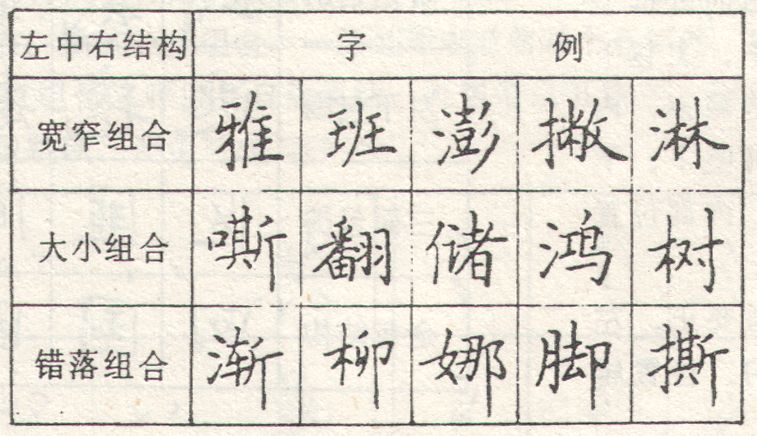 左中右结构 字例
宽窄组合 雅 班 澎 撇 淋
大小组合 嘶 翻 储 鸿 树
错落组合 渐 柳 娜 脚 撕